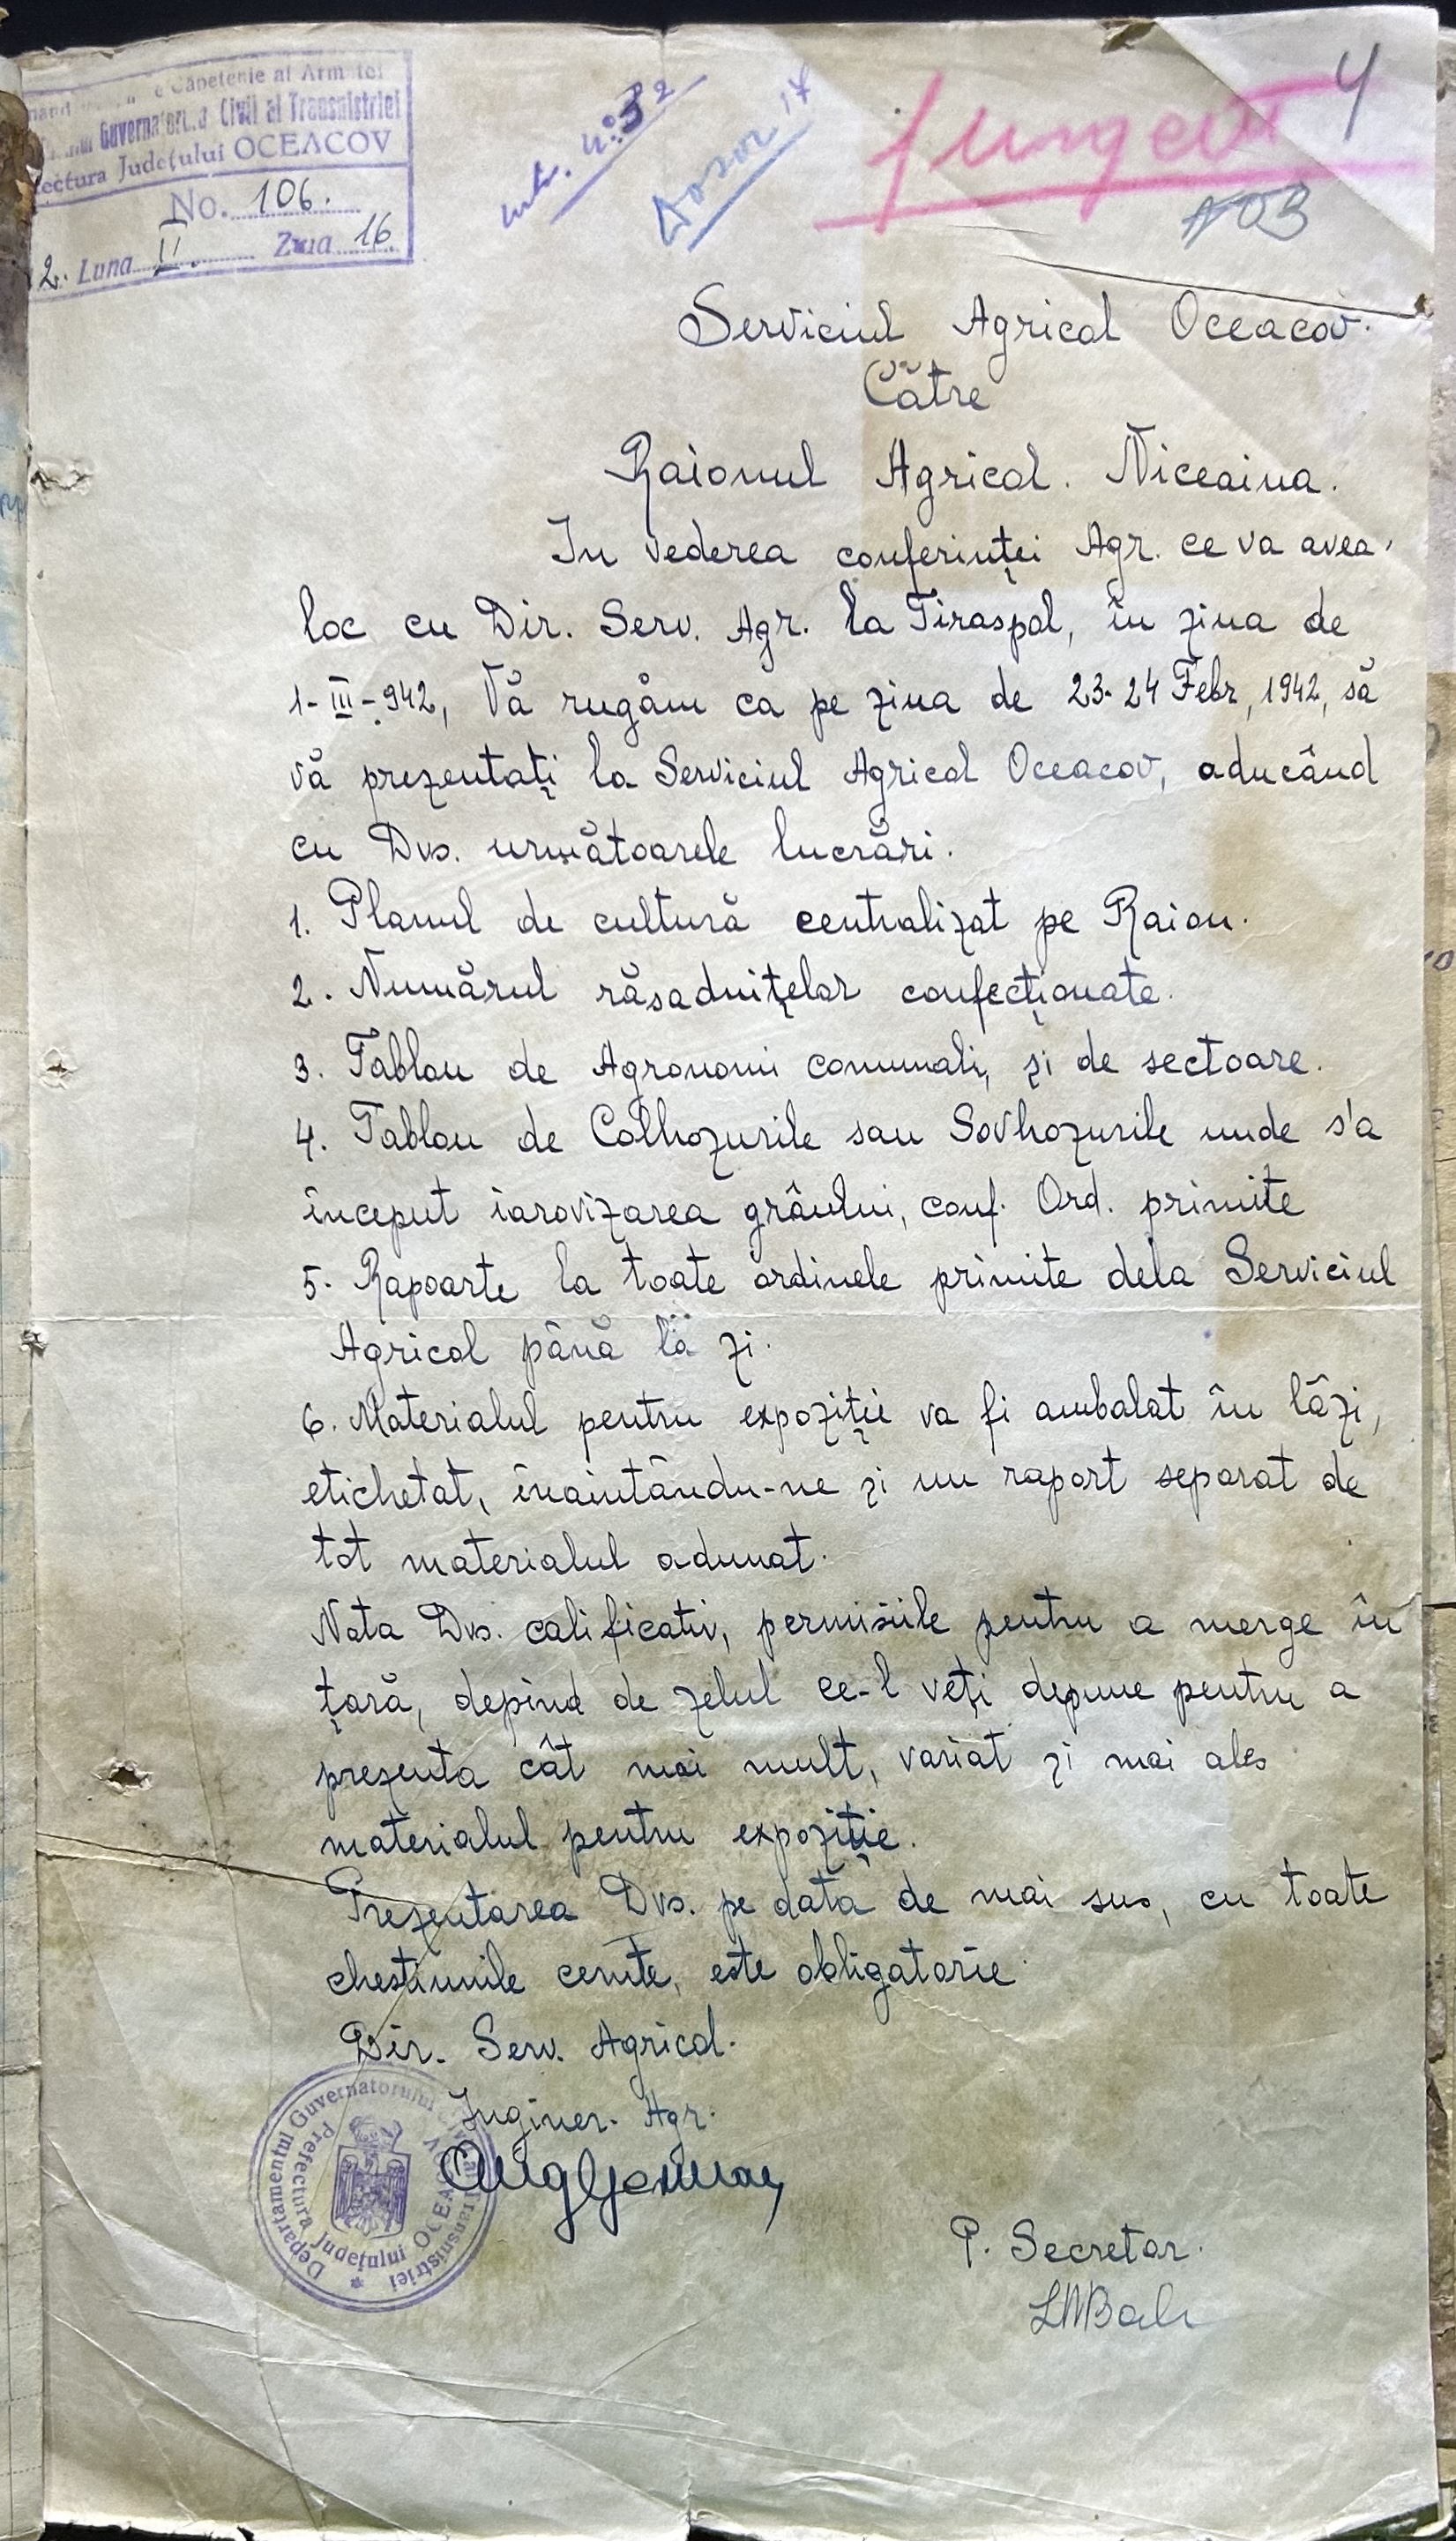 Capetenie al Armatei
Guvernatorul Civil al Transnistriei
Prefectura Județului OCEACOV
No. 106.
2. Luna II. Ziua 16
intr. nr: 32
Dosar 17
urgent
4
103
Serviciul Agricol Oceacov.
Către
Raionul Agricol. Niceaina.
In vederea conferinței Agr. ce va avea
loc cu Dir. Serv. Agr. la Tiraspol, în ziua de
1-III-942, Vă rugăm ca pe ziua de 23-24 Febr, 1942, să
vă prezentați la Serviciul Agricol Oceacov, aducând
cu Dvs. următoarele lucrări.
1. Planul de cultură centralizat pe Raion.
2. Numărul răsadnițelor confecționate.
3. Tablou de Agronomi comunali, și de sectoare.
4. Tablou de Colhozurile sau Sovhozurile unde s'a
început iarovizarea grâului, conf. Ord. primite
5. Rapoarte la toate ordinele primite dela Serviciul
Agricol până la zi.
6. Materialul pentru expoziție va fi ambalat în lăzi,
etichetat, înaintându-ne și un raport separat de
tot materialul adunat.
Nota Dvs. calificativ, permisiile pentru a merge în
țară, depind de zelul ce-l veți depune pentru a
prezenta cât mai mult, variat și mai ales
materialul pentru expoziție.
Prezentarea Dvs. pe data de mai sus, cu toate
chestiunile cerute, este obligatorie.
Dir. Serv. Agricol.
Inginer. Agr.
Departamentul Guvernatorului Civil al Transnistriei
Prefectura Județului OCEACOV
P. Secretar.